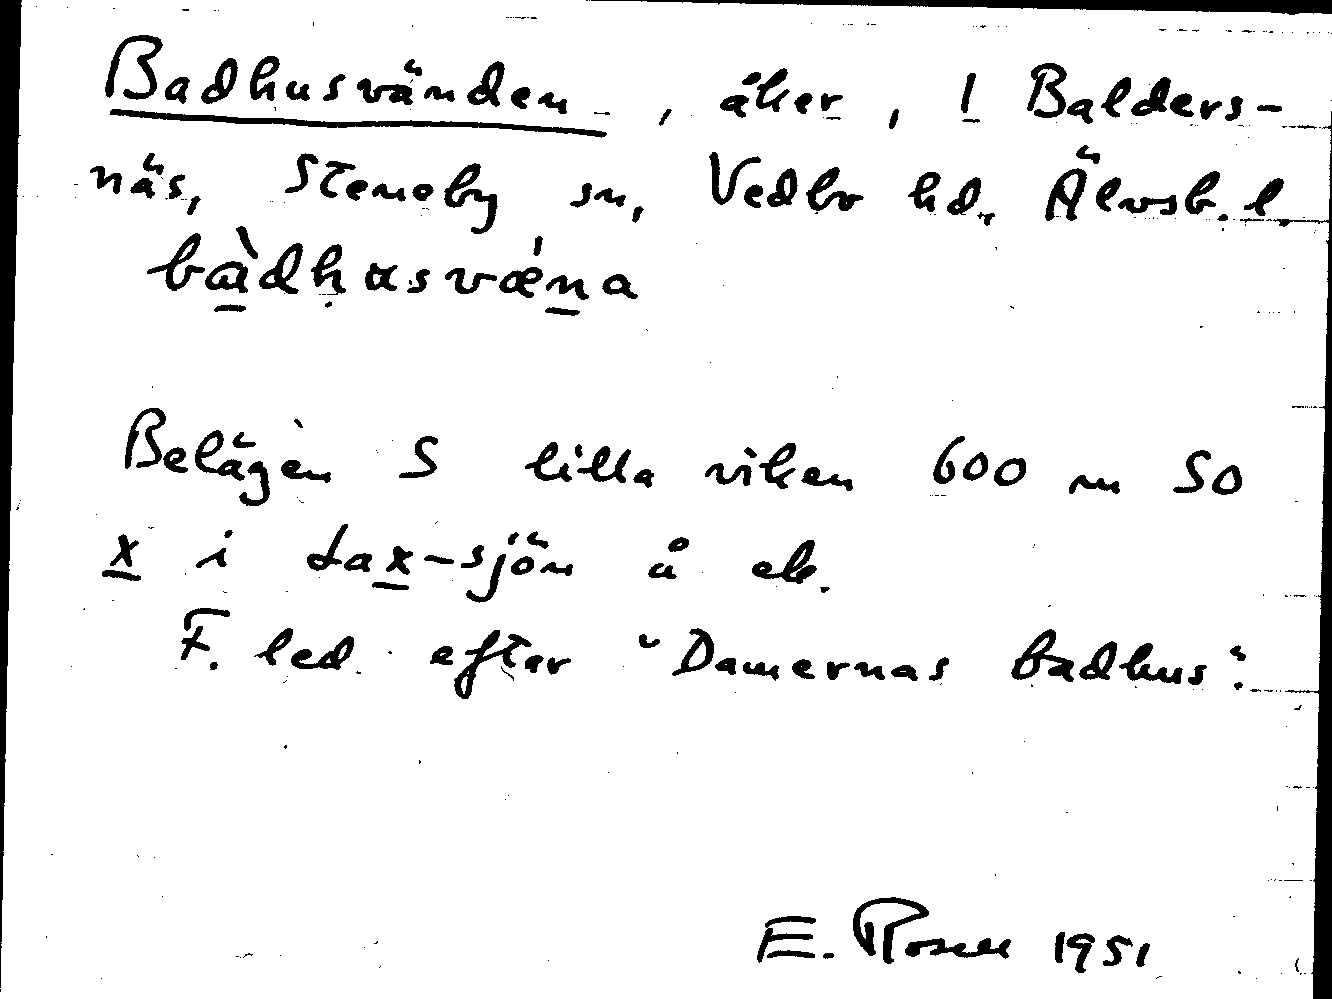 Badhusvänden, åker, 1 Balders-
näs, Steneby sn, Vedbo hd, Älvsb. l.
bàdhusvǽna
Belägen S lilla viken 600 m SO
x i Lax-sjön å ek.
F. led efter "Damernas badhus".
E. Rosell 1951